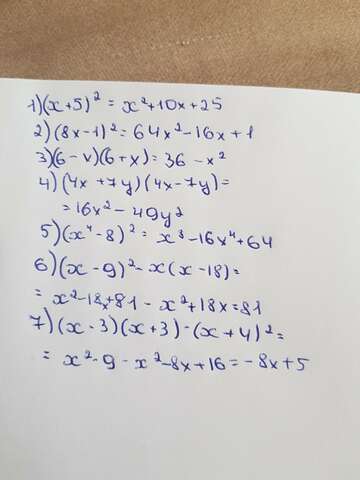 1)(x+5)² = x²+10x+25
2)(8x-1)²=64x²-16x+1
3)(6-v)(6+x)=36-x²
4)(4x+7y)(4x-7y)=
=16x²-49y²
5)(x⁴-8)²=x⁸-16x⁴+64
6)(x-9)²-x(x-18)=
=x²-18x+81-x²+18x=81
7)(x-3)(x+3)-(x+4)²=
=x²-9-x²-8x+16=-8x+5